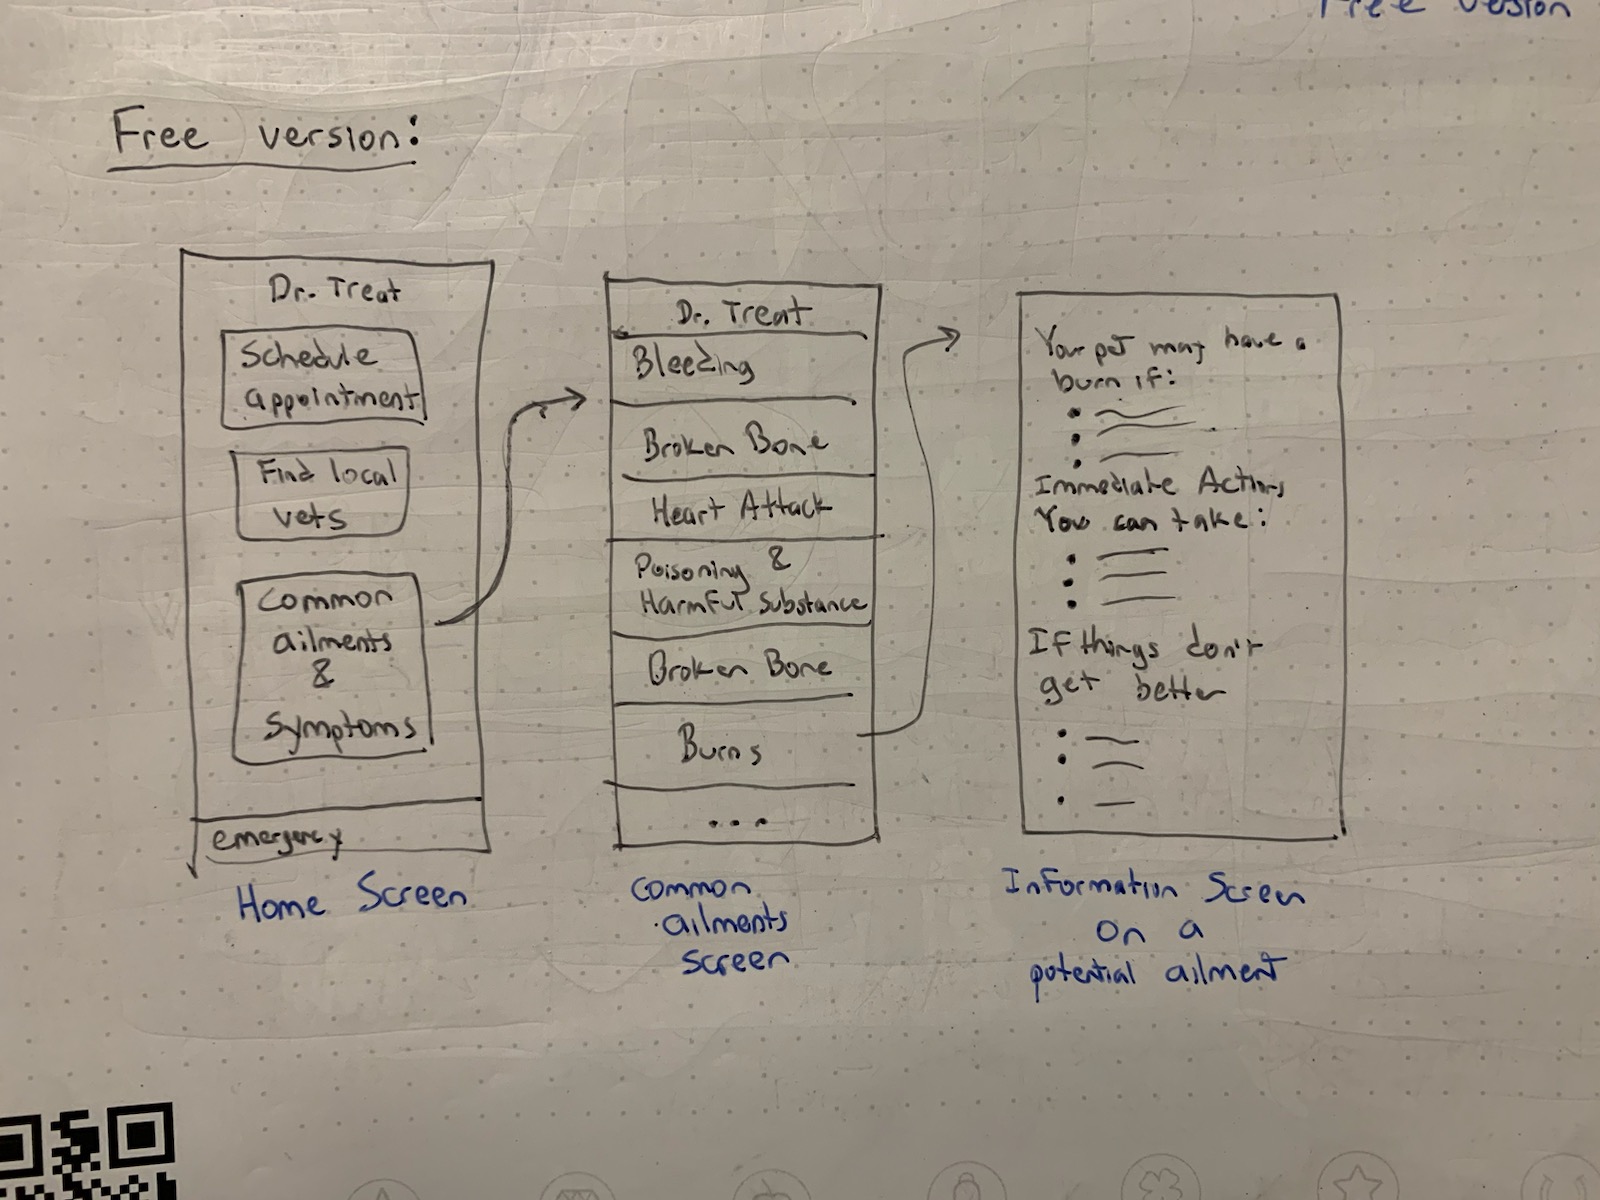 Free version
Free version:
Dr. Treat
Schedule
appointment
Find local
vets
Common
ailments
&
Symptoms
emergency
Home Screen
Dr. Treat
Bleeding
Broken Bone
Heart Attack
Poisoning &
Harmful Substance
Broken Bone
Burns
...
Common
ailments
screen
Your pet may have a
burn if:
Immediate Actions
You can take:
If things don't
get better
Information Screen
on a
potential ailment